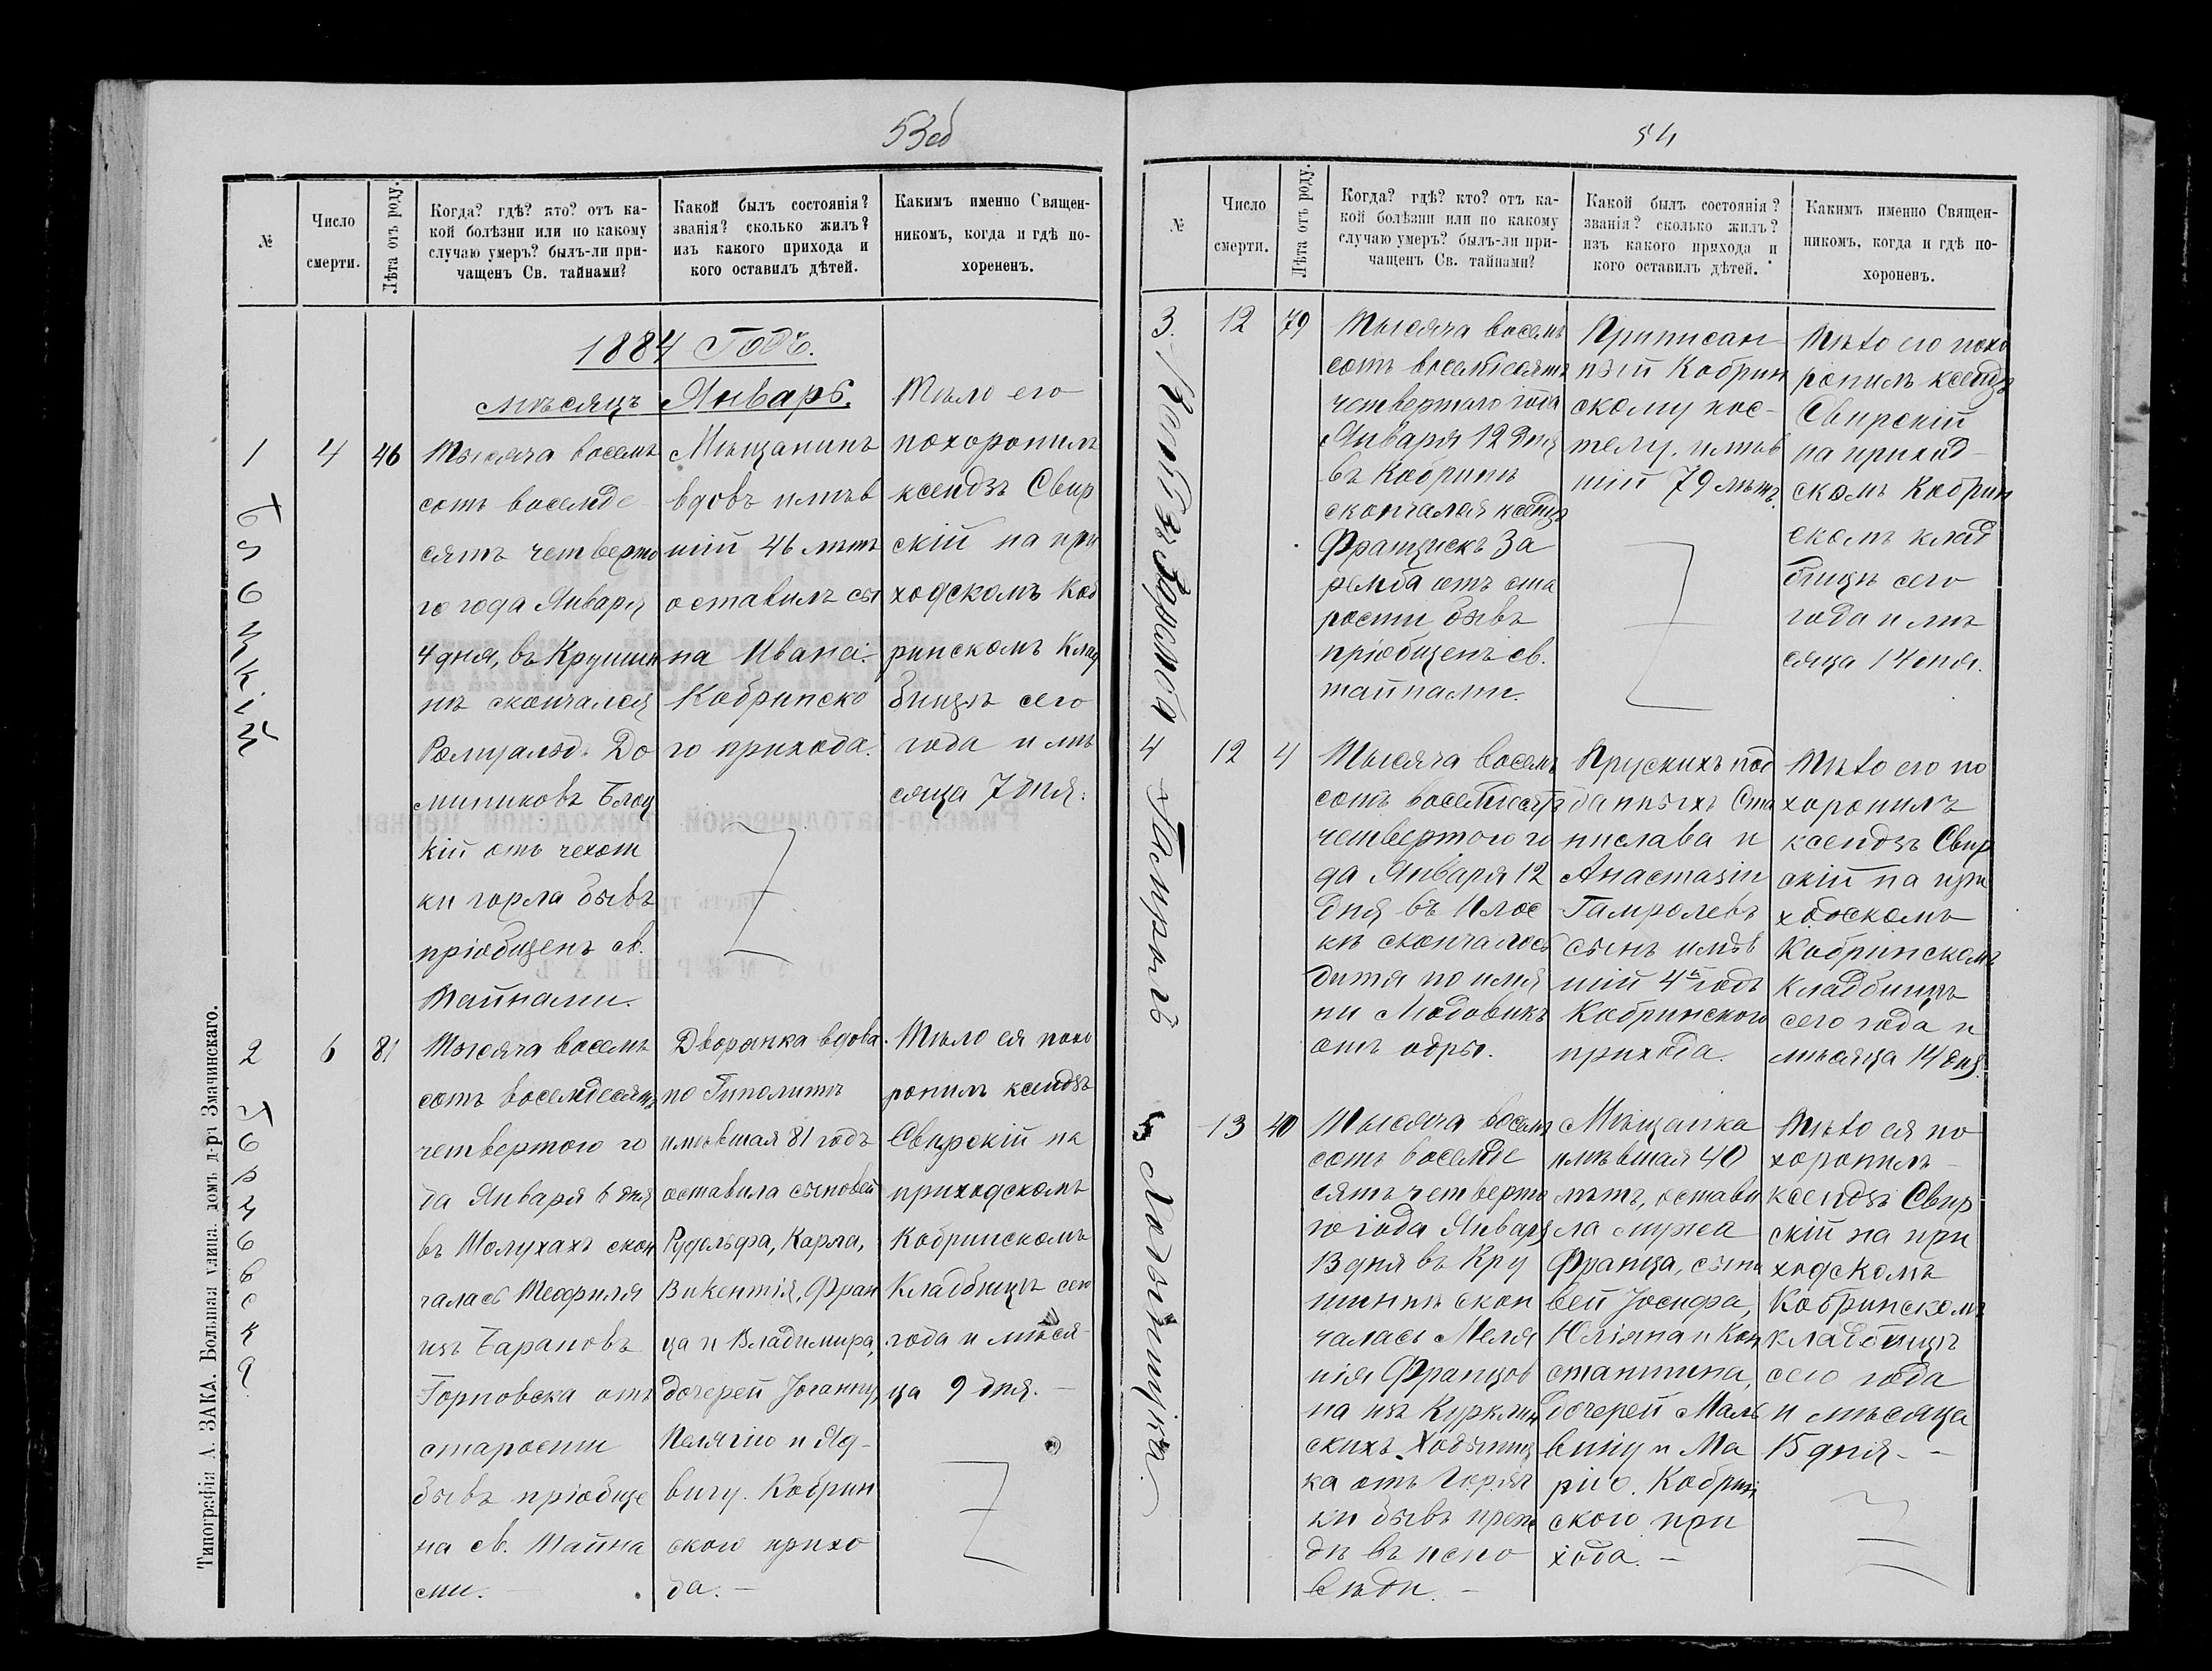 53об
№
Число
смерти.
Лѣта отъ роду.
Когда? гдѣ? кто? отъ ка-
кой болѣзни или по какому
случаю умеръ? былъ-ли при-
чащенъ Св. тайнами?
Какой былъ состоянія?
званія? сколько жилъ?
изъ какого прихода и
кого оставилъ дѣтей.
Какимъ именно Священ-
никомъ, когда и гдѣ по-
хорененъ.
1884 Годъ.
мѣсяцъ Январь.
1
Блоцкій
4
46
Тысяча восемъ
сотъ восемде
сятъ четверто
го года Января
4 дня, въ Крупчи
нѣ скончался
Ромуальд До
миниковъ Блоц
кій отъ чехот
ки горла бывъ
пріобщенъ св.
Тайнами.
Мѣщанинъ
вдовъ имѣв
шій 46 лѣтъ
оставилъ сы
на Ивана.
Кобринско
го прихода.
Тѣло его
похоронилъ
ксендзъ Свир
скій на при
ходскомъ Коб
ринскомъ Клад
бищѣ сего
года и мѣ
сяца 7 дня.
2
Горновска
6
81
Тысяча восемъ
сотъ восемдесятъ
четвертого го
да Января 6 дня
въ Шолухахъ скон
чалась Теофиля
изъ Барановъ
Горновска отъ
старости
бывъ пріобще
на св. Тайна
ми.
Дворянка вдова
по Гиполитѣ
имѣвшая 81 годъ
оставила сыновей
Рудольфа, Карла,
Викентія, Фран
ца и Владимира,
дочерей Іоганну,
Пелягію и Яд-
вигу. Кобрин
ского прихо
да.
Тѣло ея похо
ронилъ ксендзъ
Свирскій на
приходскомъ
Кобринскомъ
Кладбищѣ сего
года и мѣся-
ца 9 дня.
Типографія А. ЗАКА. Большая улица. домъ д-ра Змачинскаго.
54
№
Число
смерти.
Лѣта отъ роду.
Когда? гдѣ? кто? отъ ка-
кой болѣзни или по какому
случаю умеръ? былъ-ли при-
чащенъ Св. тайнами?
Какой былъ состоянія?
званія? сколько жилъ?
изъ какого прихода и
кого оставилъ дѣтей.
Какимъ именно Священ-
никомъ, когда и гдѣ по-
хороненъ.
3.
Ксендзъ Заремба
12
79
Тысяча восемъ
сотъ восемдесятъ
четвертаго года
Января 12 дня
въ Кобринѣ
скончался ксендзъ
Францискъ За
ремба отъ ста
рости бывъ
пріобщенъ св.
тайнами.
Приписан
ный Кобрин
скому кос-
телу, имѣв
шій 79 лѣтъ.
Тѣло его похо
ронилъ ксендзъ
Свирскій
на приход-
скомъ Кобрин
скомъ клад
бищѣ сего
года и мѣ
сяца 14 дня.
4
Гамроль
12
4
Тысяча восемъ
сотъ восемдесятъ
четвертого го
да Января 12
дня въ Плос
кѣ скончалось
дитя по име
ни Людовикъ
отъ одры.
Прускихъ под
данныхъ Ста
нислава и
Анастазіи
Гамролевъ
сынъ имѣв
шій 4 годъ
Кобринского
прихода.
Тѣло его по
хоронилъ
ксендзъ Свир
скій на при
ходскомъ
Кобринскомъ
Кладбищѣ
сего года и
мѣсяца 14 дня.
5
13
40
Тысяча восемъ
сотъ восемде
сятъ четверто
го года Января
13 дня въ Кру
пчинѣ скон
чалась Меля
нія Францов
на изъ Курклин
скихъ
ка отъ Горяч
ки бывъ преж
дѣ въ испо
вѣди.
Мѣщанка
имѣвшая 40
лѣтъ, остави
ла мужа
Франца, сыно
вей Іосифа,
Юліяна и Кон
стантина,
дочерей Маль
вину и Ма
рію. Кобрин
ского при
хода.
Тѣло ея по
хоронилъ
ксендзъ Свир
скій на при
ходскомъ
Кобринскомъ
кладбищѣ
сего года
и мѣсяца
15 дня.